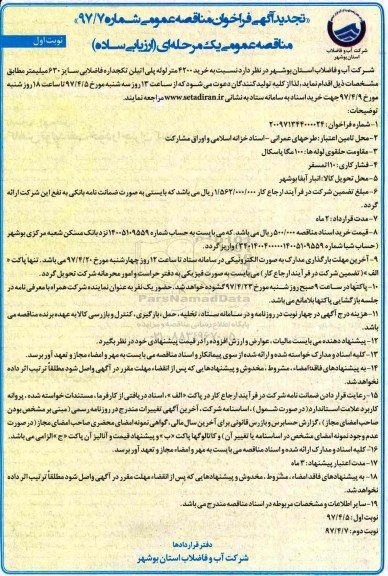 «تجدید آگهی فراخوان مناقصه عمومی شماره ۹۷/۷»
مناقصه عمومی یک مرحله‌ای (ارزیابی ساده)
نوبت اول
شرکت آب و فاضلاب
استان بوشهر
شرکت آب و فاضلاب استان بوشهر در نظر دارد نسبت به خرید ۴۲۰۰ متر لوله پلی اتیلن تکجداره فاضلابی سایز ۶۳۰ میلیمتر مطابق
مشخصات ذیل اقدام نماید، لذا از کلیه تولید کنندگان دعوت می‌شود که از ساعت ۱۳ روز سه شنبه مورخ ۹۷/۴/۵ تا ساعت ۱۸ روز شنبه
مورخ ۹۷/۴/۹ جهت خرید اسناد به سامانه ستاد به نشانی www.setadiran.ir مراجعه نمایند.
توضیحات:
۱- شماره فراخوان: ۲۰۰۹۷۱۳۴۴۰۰۰۰۲۴
۲- محل تامین اعتبار: طرحهای عمرانی - اسناد خزانه اسلامی و اوراق مشارکت
۳- مقاومت حلقوی لوله ها: ۱۰۰ مگا پاسکال
۴- فشار کاری: ۱۱۰ اتمسفر
۵- محل تحویل کالا: انبار آبفا بوشهر
۶- مبلغ تضمین شرکت در فرآیند ارجاع کار ۱/۵۶۲/۰۰۰/۰۰۰ ریال می باشد که بایستی به صورت ضمانت نامه بانکی به نفع این شرکت ارائه
گردد.
۷- مدت قرارداد: ۲ ماه
۸- قیمت خرید اسناد مناقصه ۵۰۰/۰۰۰ ریال می باشد. که می بایست به حساب شماره ۱۴۰۰۵۱۰۹۵۵۹ نزد بانک مسکن شعبه مرکزی بوشهر
واریز گردد.
۹- آخرین مهلت بارگذاری مدارک به صورت الکترونیکی در سامانه ستاد تا ساعت ۱۲ روز چهارشنبه مورخ ۹۷/۴/۲۰ می باشد. تنها پاکت «
الف» (تضمین شرکت در فرآیند ارجاع کار) می بایست به صورت فیزیکی به دفتر حراست و امور محرمانه شرکت تحویل گردد.
۱۰- پاکتها در ساعت ۹ صبح روز شنبه مورخ ۹۷/۴/۲۳ گشوده خواهد شد. حضور یک نفر به عنوان نماینده شرکت همراه با معرفی نامه در
جلسه بازگشایی پاکتها بلامانع می باشد.
۱۱- هزینه درج آگهی در چهار نوبت در روزنامه و در سامانه ستاد، تخلیه، حمل، بارگیری، کنترل و بازرسی کالا به عهده برنده مناقصه می
باشد.
۱۲- پیشنهاد دهنده می بایست مالیات، عوارض و ارزش افزوده را در قیمت پیشنهادی خود در نظر بگیرد.
۱۳- کلیه اسناد و مدارک خواسته شده و ارائه شده از سوی پیمانکار و اسناد مناقصه می بایست به مهر و امضاء مجاز و تعهد آور برسد.
۱۴- به پیشنهادهای فاقد امضاء، مشروط، مخدوش و پیشنهادهایی که پس از انقضاء مهلت مقرر در آگهی واصل شود مطلقاً ترتیب اثر داده
نخواهد شد.
۱۵- رعایت قرار دادن ضمانت نامه شرکت در فرآیند ارجاع کار در پاکت «الف»، اسناد دریافتی از کارفرما، مستندات خواسته شده، پروانه
کاربرد علامت استاندارد (در صورت شمول)، اساسنامه شرکت، آخرین آگهی تغییرات مندرج در روزنامه رسمی (مبنی بر مشخص بودن
صاحب امضای مجاز)، گزارش حسابرس و بازرس قانونی برای آخرین سال مالی، گواهی نمونه امضای محضری صاحب امضای مجاز (در صورت
عدم وجود نمونه امضای مشخص در اساسنامه یا تغییر آن) و کاتالوگها پاکت «ب» و پیشنهاد قیمت و آنالیز آن پاکت «ج» الزامی می باشد.
۱۶- کلیه اسناد و مدارک ارائه شده و اسناد مناقصه می بایست به مهر و امضاء مجاز و تعهد آور برسد.
۱۷- مدت اعتبار پیشنهاد: ۳ ماه
۱۸- به پیشنهادهای فاقد امضاء، مشروط، مخدوش و پیشنهادهایی که پس از انقضاء مهلت مقرر در آگهی واصل شود مطلقاً ترتیب اثر داده
نخواهد شد.
۱۹- سایر اطلاعات و مشخصات مربوطه در اسناد مناقصه مندرج می باشد.
نوبت اول: ۹۷/۴/۵
نوبت دوم: ۹۷/۴/۷
دفتر قراردادها
شرکت آب و فاضلاب استان بوشهر